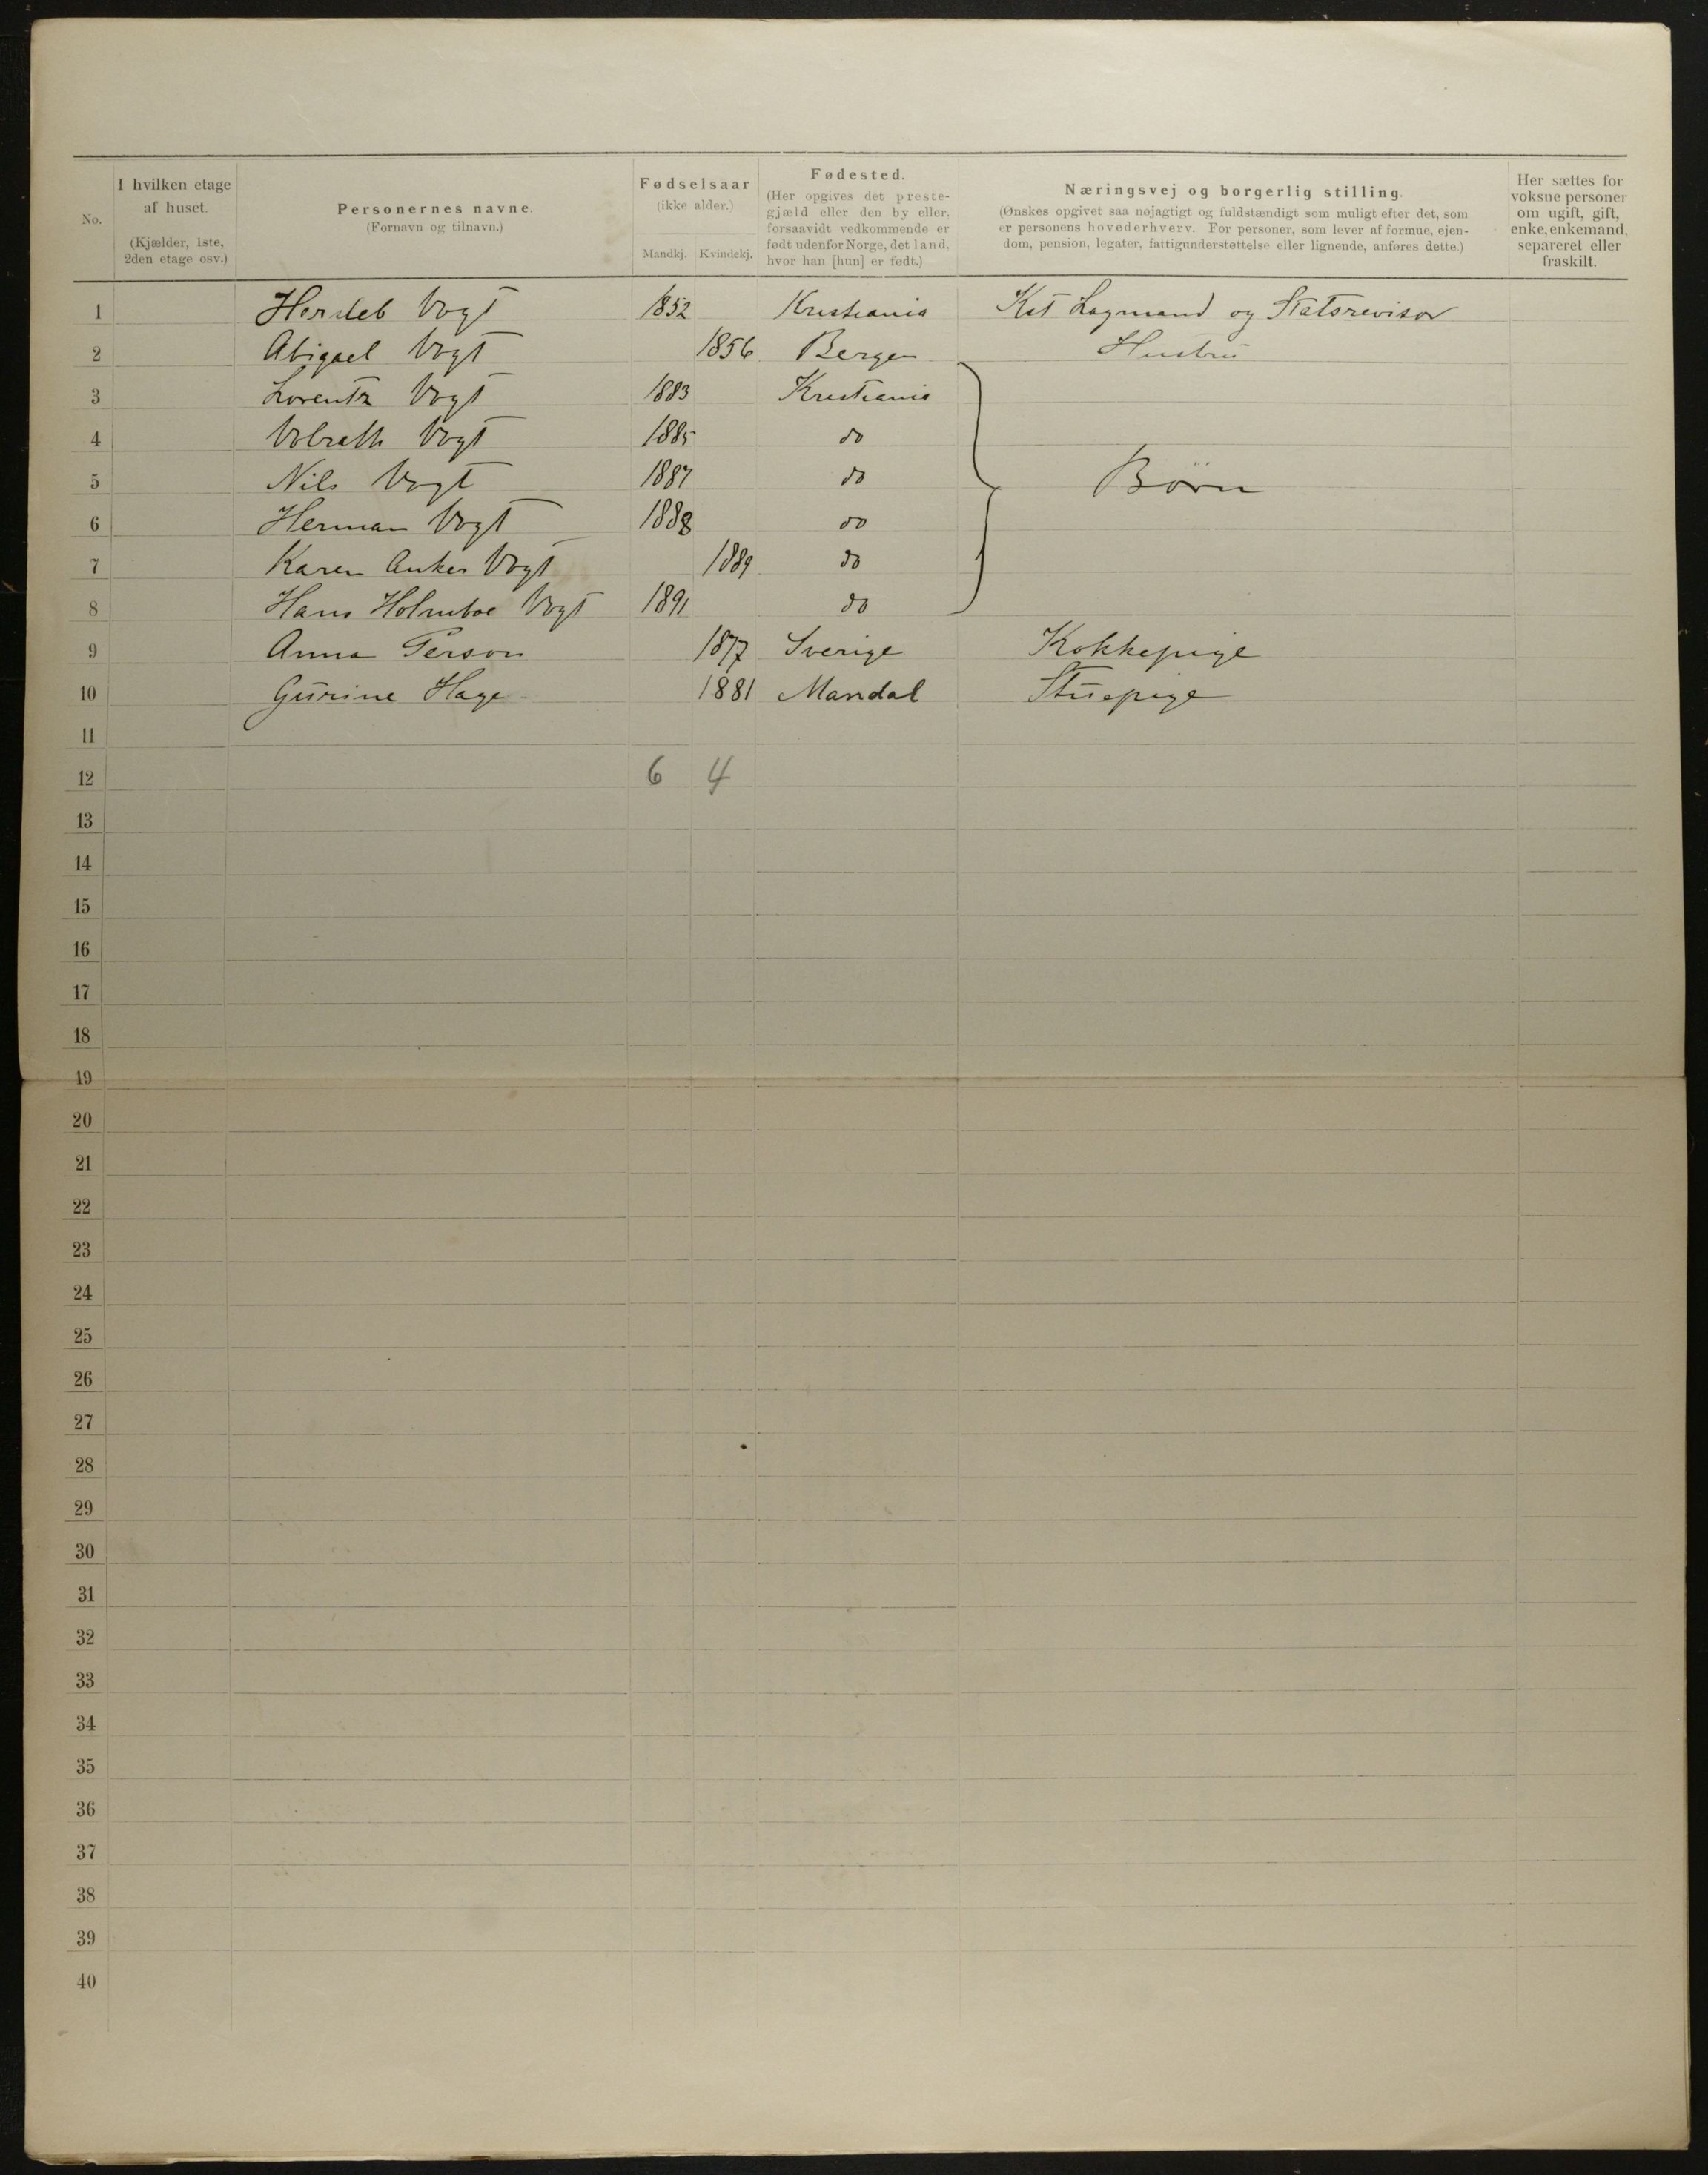 No.
I hvilken etage af huset. (Kjælder, 1ste, 2den etage osv.)
Personernes navne. (Fornavn og tilnavn.)
Fødselsaar (ikke alder.)
Mandkj. Kvindekj.
Fødested. (Her opgives det prestegjæld eller den by eller, forsaavidt vedkommende er født udenfor Norge, det land, hvor han [hun] er født.)
Næringsvej og borgerlig stilling. (Ønskes opgivet saa nøjagtigt og fuldstændigt som muligt efter det, som er personens hovederhverv. For personer, som lever af formue, ejendom, pension, legater, fattigunderstøttelse eller lignende, anføres dette.)
Her sættes for voksne personer om ugift, gift, enke, enkemand, separeret eller fraskilt.
1 Hersleb Vogt 1852 Kristiania Kst Lagmand og Statsrevisor
2 Abigael Vogt 1856 Bergen Hustru
3 Lorentz Vogt 1883 Kristiania
4 Volrath Vogt 1885 do
5 Nils Vogt 1887 do Børn
6 Herman Vogt 1888 do
7 Karen Anker Vogt 1889 do
8 Hans Holmboe Vogt 1891 do
9 Anna Person 1877 Sverige Kokkepige
10 Gurine Hage 1881 Mandal Stuepige
11
12 6 4
13
14
15
16
17
18
19
20
21
22
23
24
25
26
27
28
29
30
31
32
33
34
35
36
37
38
39
40